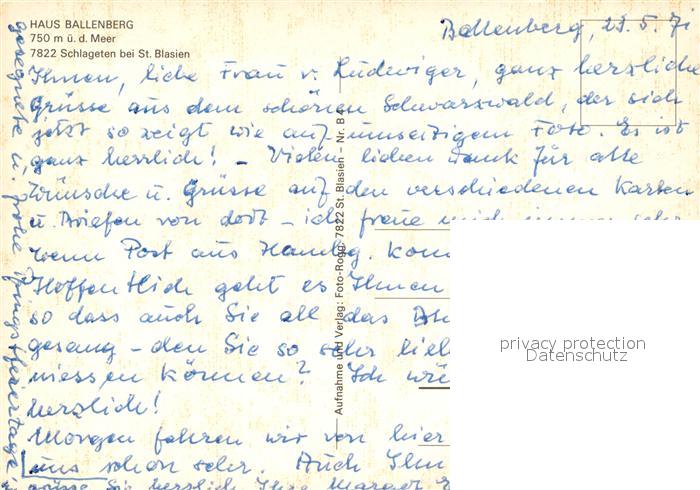 HAUS BALLENBERG
750 m ü. d. Meer
7822 Schlageten bei St. Blasien
Ballenberg, 23.5.71
Ihnen, liebe Frau v. Ludwiger, ganz herzliche
Grüsse aus dem schönen Schwarzwald, der sich
jetzt so zeigt wie auf umseitigem Foto. Es ist
ganz herrlich! – Vielen lieben Dank für alle
Wünsche u. Grüsse auf den verschiedenen Karten
u. Briefen von dort – ich freue mich immer sehr
wenn Post aus Hambg. kom
Hoffentlich geht es Ihnen
so dass auch Sie all das
gesang – den Sie so sehr lieb
niessen können? Ich wü
herzlich!
Morgen fahren wir von hier
uns schon sehr. Auch Ihn
Sie herzlich Ihre
gesegnete u. frohe Pfingstfeiertage
Aufnahme und Verlag: Foto-Rogg, 7822 St. Blasien – Nr. B 4
privacy protection
Datenschutz